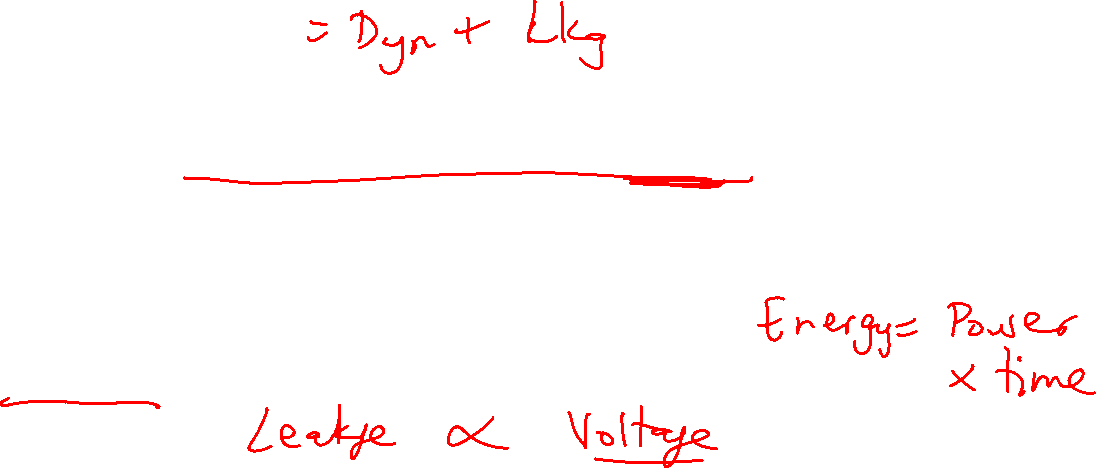 = Dyn + Lkg
Energy = Power
x time
Leakge ∝ Voltage